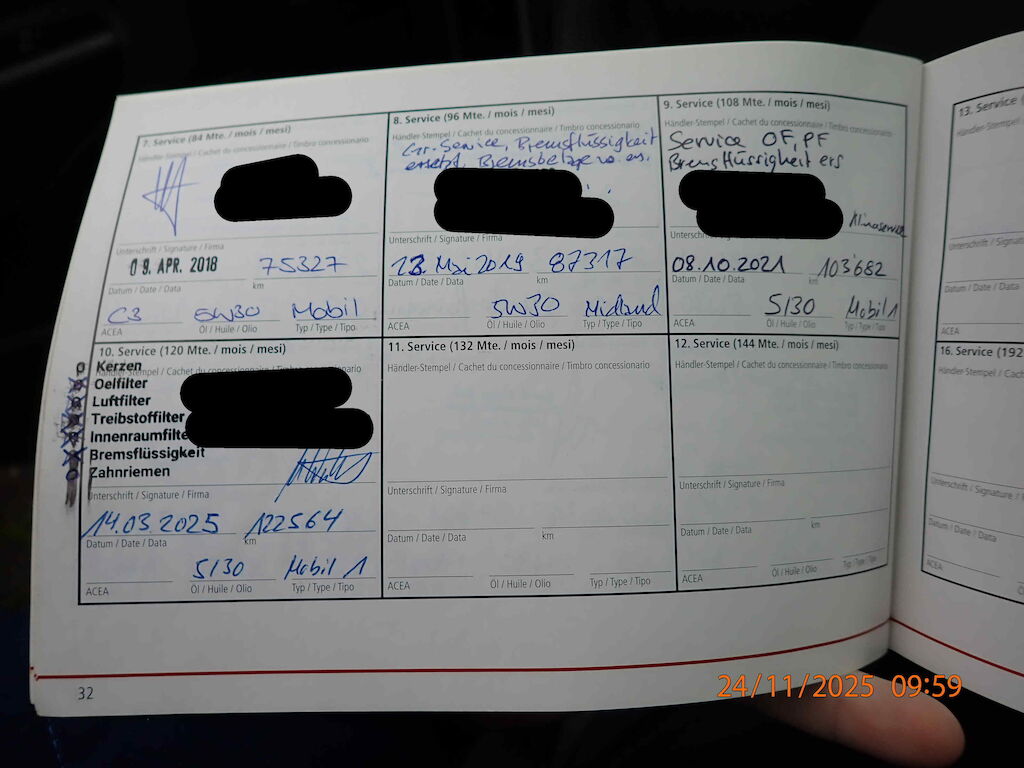 7. Service (84 Mte. / mois / mesi)
Händler-Stempel / Cachet du concessionnaire / Timbro concessionario
Unterschrift / Signature / Firma
09. APR. 2018 75327
Datum / Date / Data km
C3 5W30 Mobil
ACEA Öl / Huile / Olio Typ / Type / Tipo
8. Service (96 Mte. / mois / mesi)
Händler-Stempel / Cachet du concessionnaire / Timbro concessionario
Gr. Service, Bremsflüssigkeit
ersetzt, Bremsbeläge
Unterschrift / Signature / Firma
13. Mai 2019 87317
Datum / Date / Data km
5W30 Midland
ACEA Öl / Huile / Olio Typ / Type / Tipo
9. Service (108 Mte. / mois / mesi)
Händler-Stempel / Cachet du concessionnaire / Timbro concessionario
Service OF, PF
Bremsflüssigkeit ers
Klimaservice
Untersch
08.10.2021 103'682
Datum / Date / Data km
5/30 Mobil 1
ACEA Öl / Huile / Olio Typ / Type / Tipo
10. Service (120 Mte. / mois / mesi)
Kerzen
Oelfilter
Luftfilter
Treibstoffilter
Innenraumfilte
Bremsflüssigkeit
Zahnriemen
Unterschrift / Signature / Firma
14.03.2025 122564
Datum / Date / Data km
5/30 Mobil 1
ACEA Öl / Huile / Olio Typ / Type / Tipo
11. Service (132 Mte. / mois / mesi)
Händler-Stempel / Cachet du concessionnaire / Timbro concessionario
Unterschrift / Signature / Firma
Datum / Date / Data km
ACEA Öl / Huile / Olio Typ / Type / Tipo
12. Service (144 Mte. / mois / mesi)
Händler-Stempel / Cachet du concessionnaire / Timbro concessionario
Unterschrift / Signature / Firma
Datum / Date / Data km
ACEA Öl / Huile / Olio Typ / Type / Tipo
13. Service
Händler-Stempel
Unterschrift / Signatu
Datum / Date / Data
ACEA
16. Service (192
Händler-Stempel / Cach
Unterschrift / Signature /
Datum / Date / Data
ACEA
32
24/11/2025 09:59